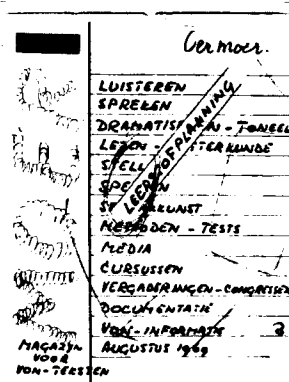 Vermoer.
LUISTEREN
SPREKEN
DRAMATIS EN - TONEEL
LEZEN - TTERKUNDE
STELL
LEERSTOFPLANNING
SPE EN
S KUNST
METHODEN - TESTS
MEDIA
CURSUSSEN
VERGADERINGEN - CONGRESSEN
DOCUMENTATIE
VON-INFORMATIE 3
AUGUSTUS 1969
MAGAZIJN
VOOR
VON-TEKSTEN